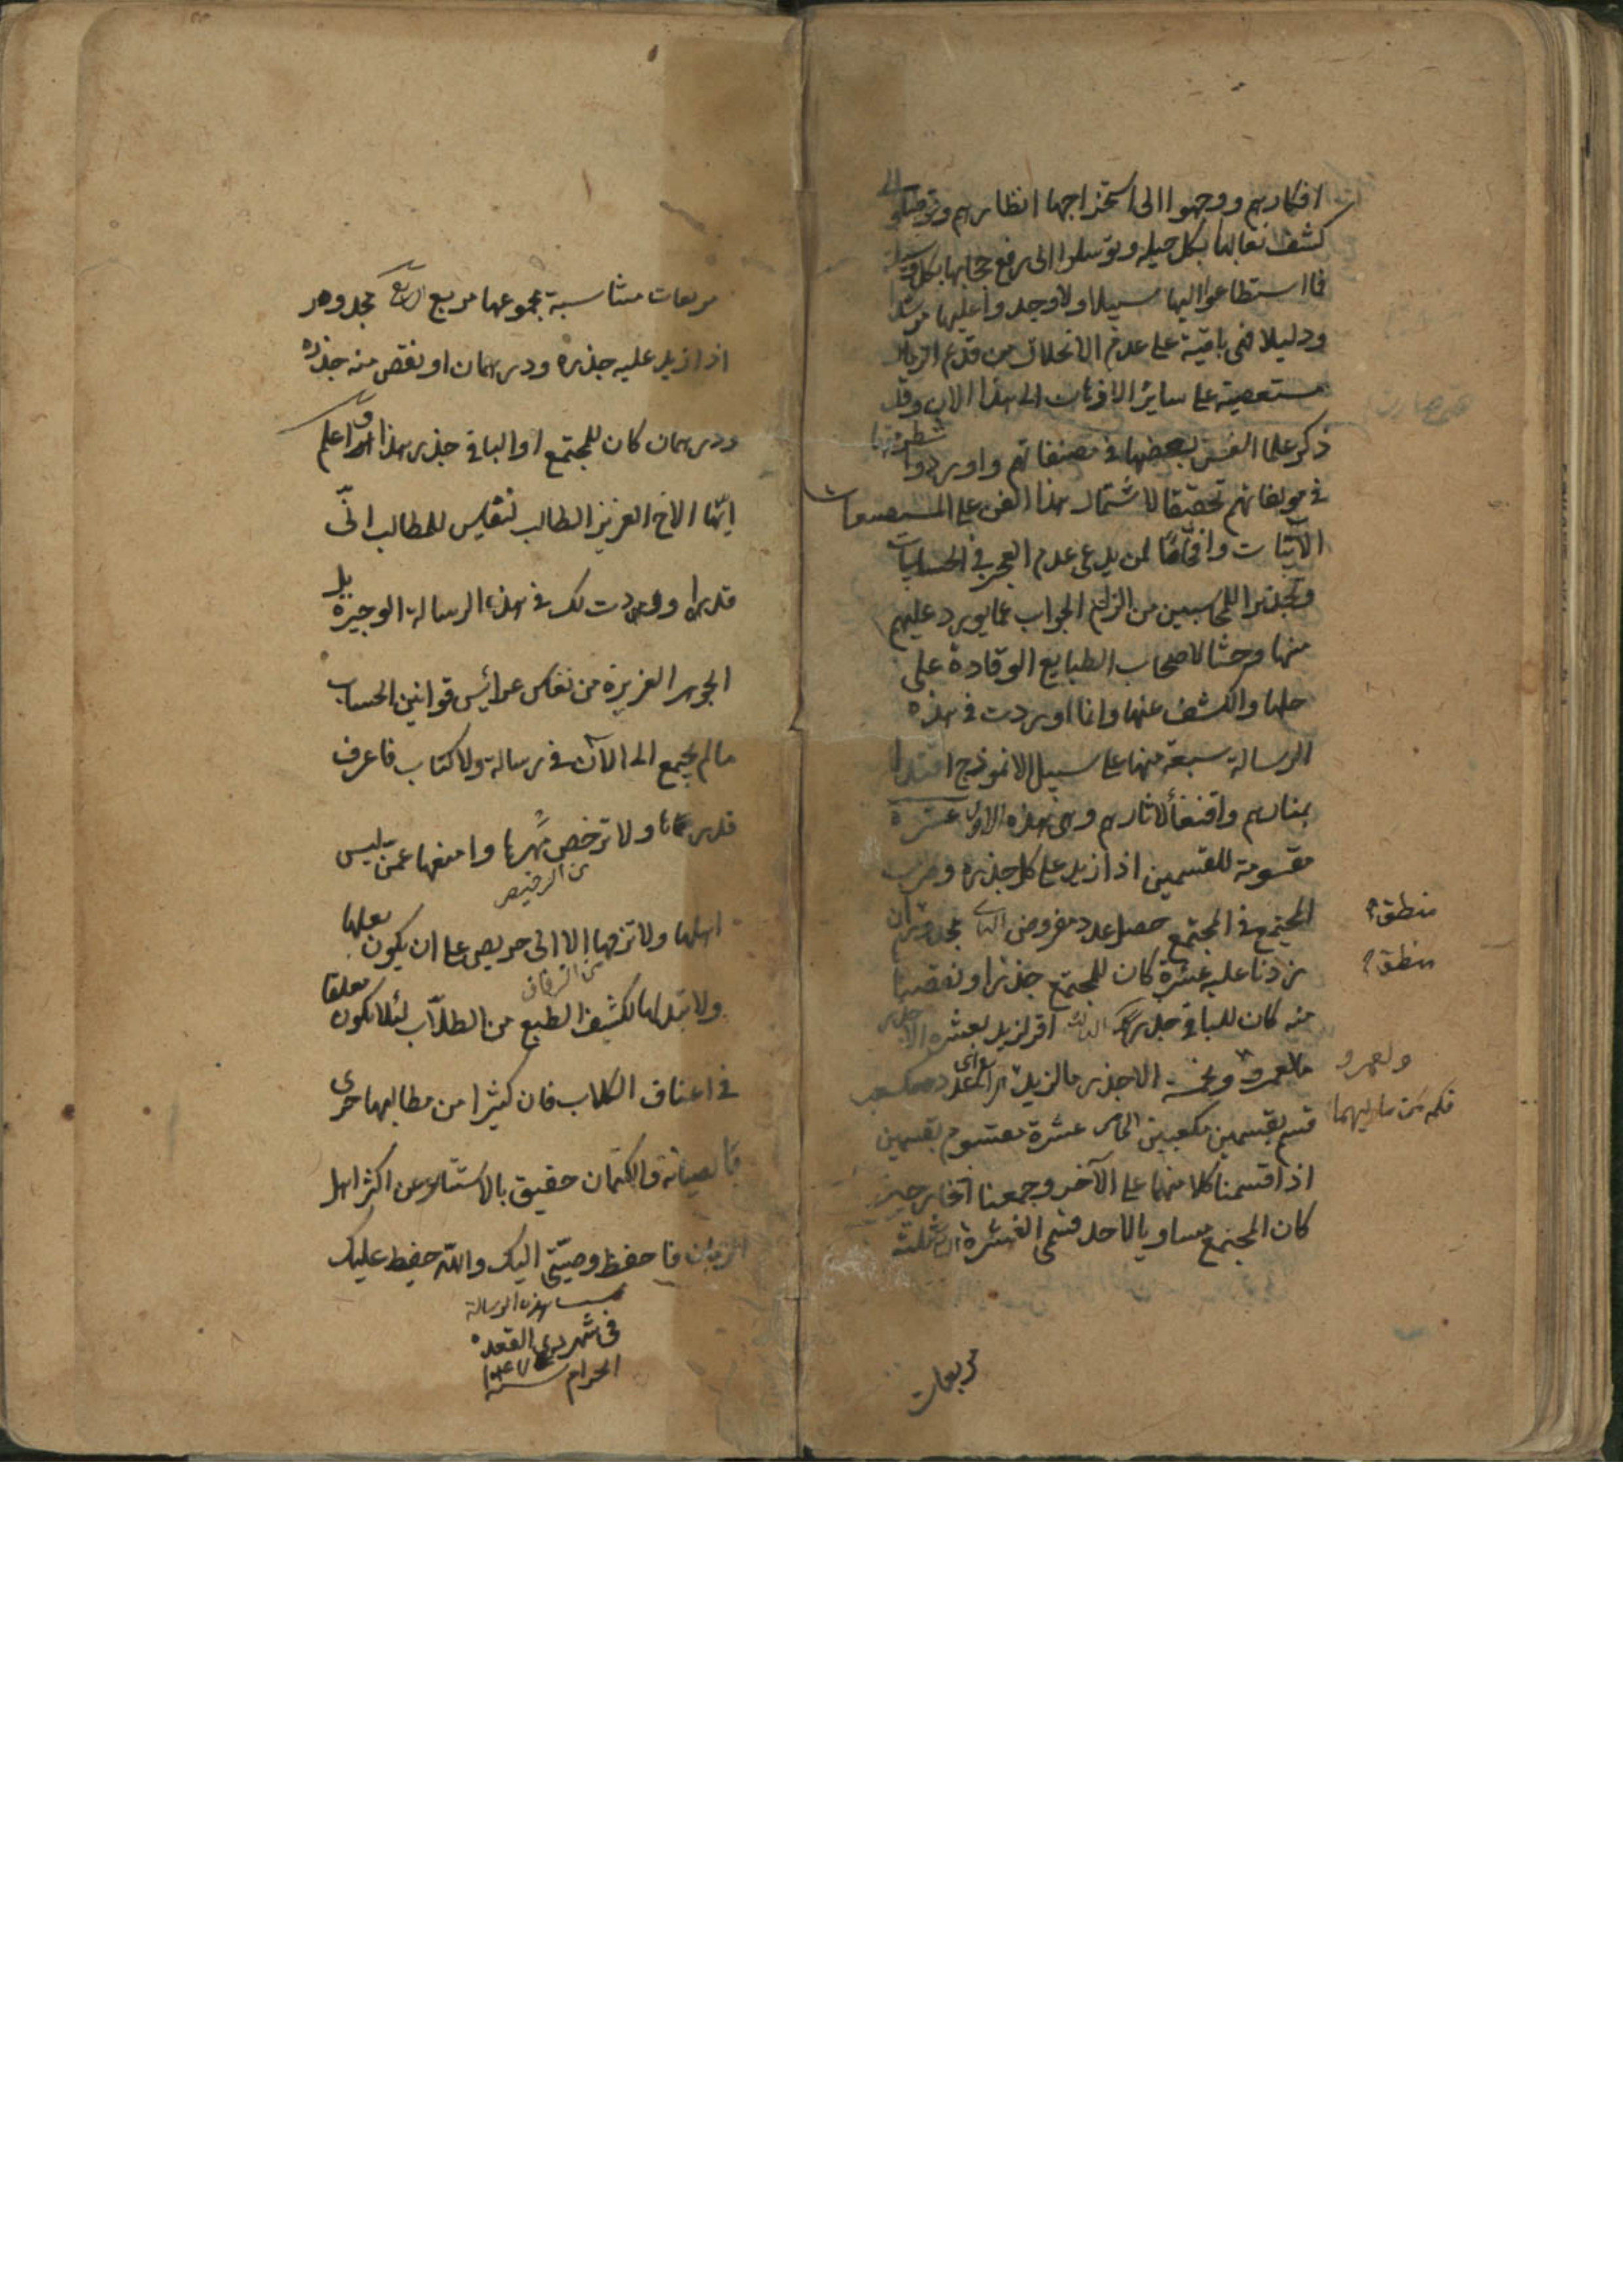 افكارهم ووجهوا الى استخراجها انظارهم وتوصلوا الى
كشف نقابها بكل حيلة وتوسلوا الى رفع حجابها بكل وسيلة
فما استطاعوا اليها سبيلا ولا وجدوا عليها مرشدا
ودليلا فهى باقية على عدم الانحلال من قديم الزمان
مستصعبة على سائر الاذهان الى هذا الان وقد
ذكر علماء الفن بعضها فى مصنفاتهم واوردوا شطرا منها
فى مولفاتهم تحقيقا لاشتمال هذا الفن على المستصعبات
الآبيات وافحاما لمن يدعى عدم العجز فى الحسابيات
وتحذيرا للمحاسبين من التزام الجواب عما يورد عليهم
منها وحثا لاصحاب الطبايع الوقادة على
حلها والكشف عنها وانا اوردت فى هذه
الرسالة سبعة منها على سبيل الانموذج اقتداء
بمنارهم واقتفاء لاثارهم وهى هذه الاولى عشرة
مقسومة لقسمين اذا زيد على كل جذره وضرب
المجتمع فى المجتمع حصل عدد مفروض الثانى مجذور ان
زدنا عليه عشرة كان للمجتمع جذر او نقصنا
منه كان للباقى جذر الثالث اقر لزيد بعشرة الا جذر
ما لعمرو وبخمسة الا جذر ما لزيد الرابع عدد مكعب
قسم بقسمين مكعبين الخامس عشرة مقسوم بقسمين
اذا قسمنا كلا منهما على الآخر وجمعنا الخارجين
كان المجتمع مساويا لاحد قسمى العشرة السادس ثلثة
منطق
منطق
ولعمرو
مربعات
مربعات متناسبة مجموعها مربع السابع مجذور
اذا زيد عليه جذره ودرهمان او نقص منه جذره
ودرهمان كان للمجتمع او الباقى جذر هذا واعلم
ايها الاخ العزيز الطالب لنفايس المطالب انى
قد اوردت لك فى هذه الرسالة الوجيزة بل
الجوهرة العزيزة من نفايس عرائس قوانين الحساب
ما لم يجتمع الى الآن فى رسالة ولا كتاب فاعرف
قدرها ولا ترخص مهرها وامنعها عمن ليس
من الرخيص
اهلها ولا تزفها الا الى حريص على ان يكون بعلها
من الزفاف
ولا تبذلها لكثيف الطبع من الطلاب لئلا تكون معلقا
فى اعناق الكلاب فان كثيرا من مطالبها حرى
بالصيانة والكتمان حقيق بالاستتار عن اكثر اهل
الزمان فاحفظ وصيتى اليك والله حفيظ عليك
هذه الرسالة
فى شهر ذى القعدة
الحرام سنة